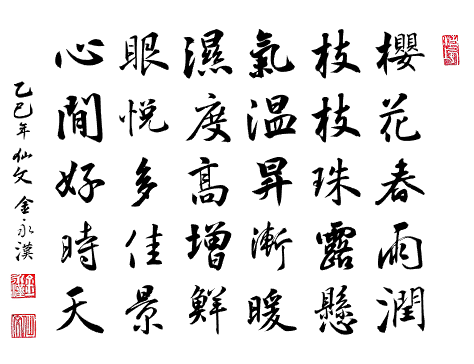 櫻花春雨潤
枝枝珠露懸
氣溫昇漸暖
濕度高增鮮
眼悅多佳景
心閒好時天
乙巳年 仙文 金永漢